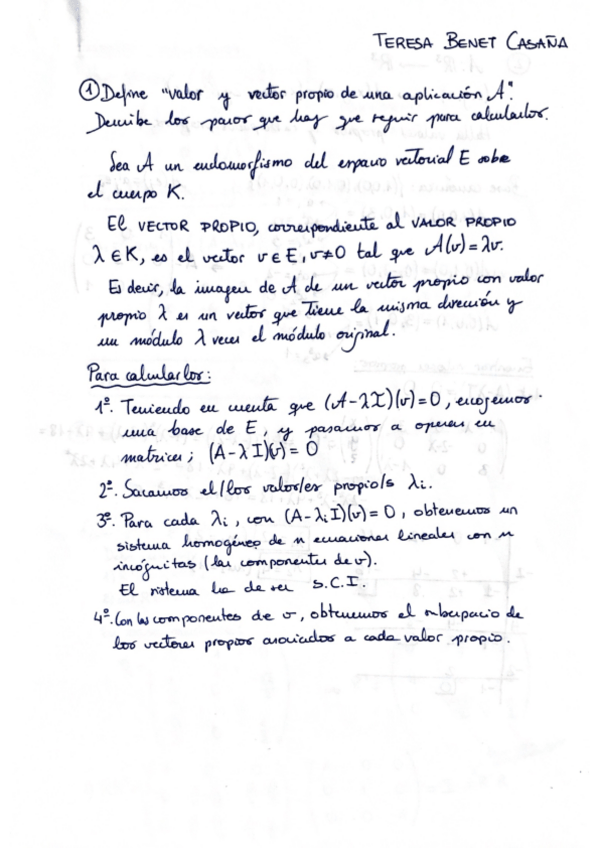 TERESA BENET CASAÑA
① Define "valor y vector propio de una aplicación A".
Describe los pasos que hay que seguir para calcularlos.
Sea A un endomorfismo del espacio vectorial E sobre
el cuerpo K.
El VECTOR PROPIO, correspondiente al VALOR PROPIO
λ ∈ K, es el vector v ∈ E, v≠0 tal que A(v) = λv.
Es decir, la imagen de A de un vector propio con valor
propio λ es un vector que tiene la misma dirección y
un módulo λ veces el módulo original.
Para calcularlos:
1º. Teniendo en cuenta que (A-λI)(v)=0, escogemos
una base de E, y pasamos a operar en
matrices; (A-λI)(v) = 0
2º. Sacamos el/los valor/es propio/s λi.
3º. Para cada λi, con (A-λiI)(v)=0, obtenemos un
sistema homogéneo de n ecuaciones lineales con n
incógnitas (las componentes de v).
El sistema ha de ser S.C.I.
4º. Con las componentes de v, obtenemos el subespacio de
los vectores propios asociados a cada valor propio.